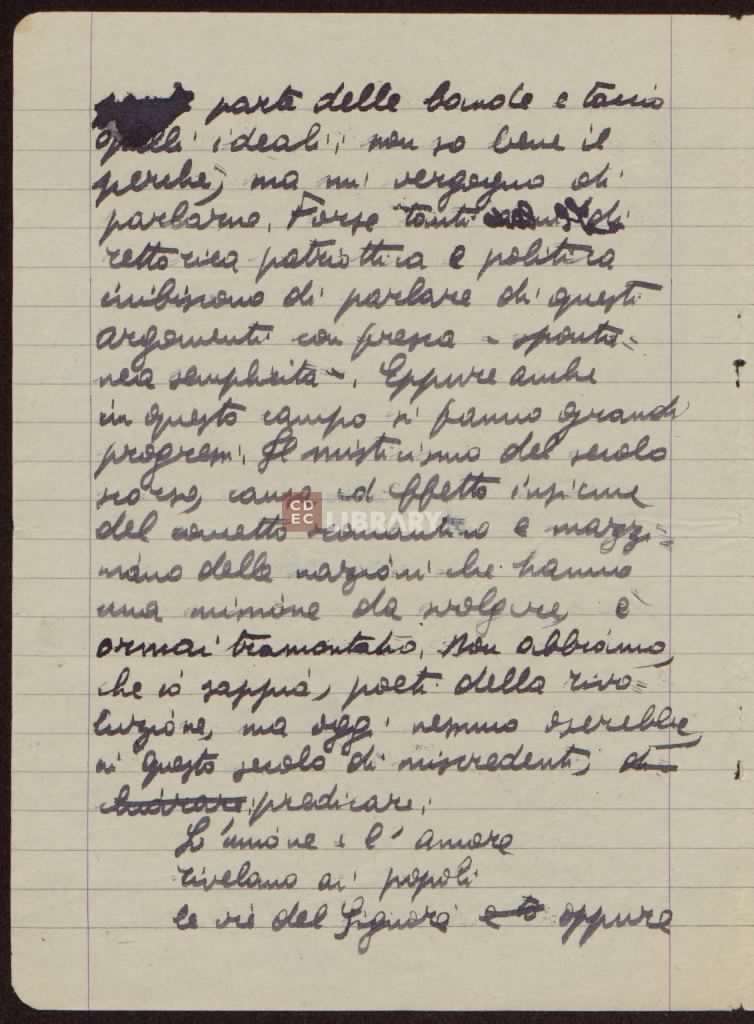 parte delle bande e taccio
quelli ideali; non so bene il
perché, ma mi vergogno di
parlarne. Forse tanti di
rettorica patriottica e politica
inibiscono di parlare di questi
argomenti con fresca - sponta=
neia semplicità -. Eppure anche
in questo campo si fanno grandi
progressi. Il misticismo del secolo
scorso, causa ed effetto insieme
del concetto romantico e mazzi=
niano delle nazioni che hanno
una missione da svolgere, è
ormai tramontato. Non abbiamo,
che io sappia, poeti della rivo=
luzione, ma oggi nessuno oserebbe,
in questo secolo di miscredenti, di
predicare:
L'unione e l'amore
rivelano ai popoli
le vie del Signore e to oppure
CDEC LIBRARY